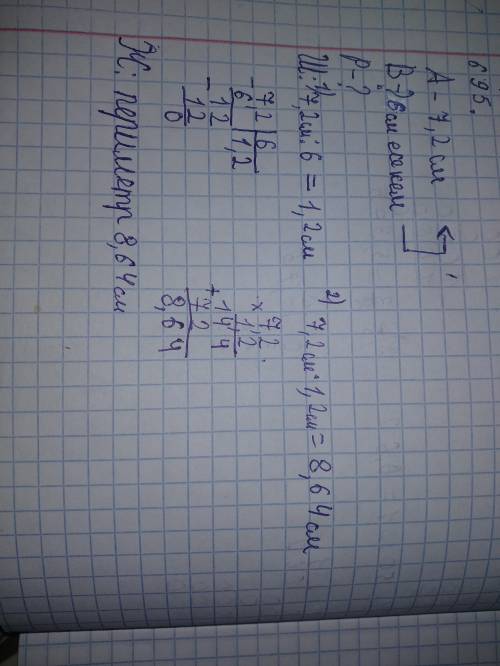 695.
A - 7,2 см
B - ? 6 см есе кем
P - ?
Ш: 1) 7,2 см : 6 = 1,2 см
7 2 | 6
6 | 1,2
- 1 2
1 2
0
2) 7,2 см · 1,2 см = 8,64 см
7 2
× 1,2
1 4 4
+ 7 2
8,6 4
Ж: периметр 8,64 см